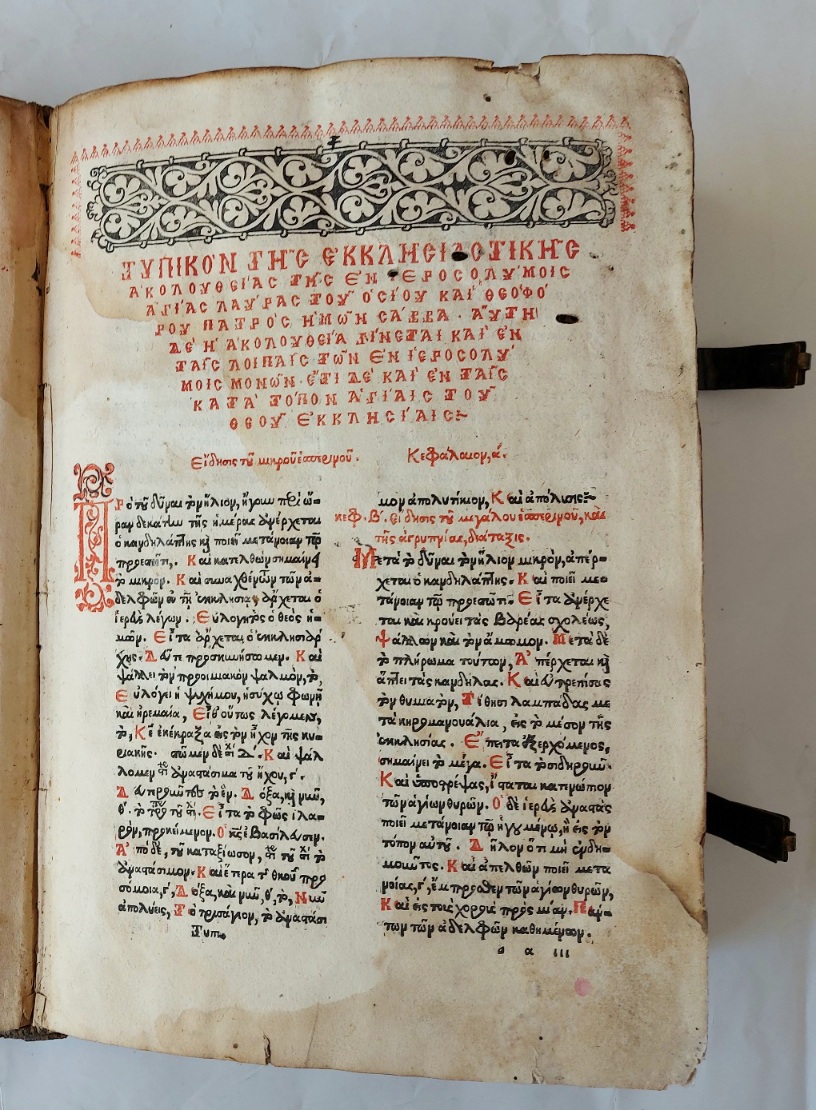 ΤΥΠΙΚῸΝ ΤΗ͂Σ ἘΚΚΛΗΣΙΑΣΤΙΚΗ͂Σ
ἈΚΟΛΟΥΘΕΊΑΣ ΤΗ͂Σ ἘΝ ἹΕΡΟΣΟΛΎΜΟΙΣ
ἉΓΊΑΣ ΛΑΎΡΑΣ ΤΟΥ͂ ὉΣΊΟΥ ΚΑῚ ΘΕΟΦΌ
ΡΟΥ ΠΑΤΡῸΣ ἩΜΩ͂Ν ΣΆΒΒΑ· ΑὝΤΗ
ΔΈ Ἡ ἈΚΟΛΟΥΘΊΑ ΓΊΝΕΤΑΙ ΚΑῚ ἘΝ
ΤΑΙ͂Σ ΛΟΙΠΑΙ͂Σ ΤΩ͂Ν ἘΝ ἹΕΡΟΣΟΛΎ
ΜΟΙΣ ΜΟΝΩ͂Ν· ἜΤΙ ΔῈ ΚΑῚ ἘΝ ΤΑΙ͂Σ
ΚΑΤᾺ ΤΌΠΟΝ ἉΓΊΑΙΣ ΤΟΥ͂
ΘΕΟΥ͂ ἘΚΚΛΗΣΊΑΙΣ:-
Εἴδησις τοῦ μικροῦ ἑσπερινοῦ. Κεφάλαιον, α΄.
Πρὸ τοῦ δῦναι τὸν ἥλιον, ἤγουν περὶ ὥ-
ραν δεκάτην τῆς ἡμέρας ἀνέρχεται
ὁ κανδηλάπτης καὶ ποιεῖ μετάνοιαν τῷ
προεστῶτι. Καὶ κατελθὼν σημαίνει
τὸ μικρόν. Καὶ συναχθέντων τῶν ἀ-
δελφῶν ἐν τῇ ἐκκλησίᾳ, ἄρχεται ὁ
ἱερεὺς λέγων. Εὐλογητὸς ὁ θεὸς ἡ-
μῶν. Εἶτα ἄρχεται ὁ ἐκκλησιάρ
χης. Δεῦτε προσκυνήσωμεν. Καὶ
ψάλλει τὸν προοιμιακὸν ψαλμὸν, τὸ,
Εὐλόγει ἡ ψυχή μου, ἡσύχῳ φωνῇ
καὶ ἠρεμαίᾳ, Εἶθ' οὕτως λέγομεν,
τὸ, Κύριε ἐκέκραξα εἰς τὸν ἦχον τῆς κυ-
ριακῆς. στῶμεν δὲ στίχους Δ΄. Καὶ ψάλ
λομεν στιχηρὰ ἀναστάσιμα τοῦ ἤχου, γ΄.
Δευτεροῦντες τὸ ἕν. Δόξα, καὶ νῦν,
Εἶτα τὸ φῶς ἱλα-
ρὸν, προκείμενον. Ὁ κύριος ἐβασίλευσεν.
Ἀπὸ δὲ, τοῦ καταξίωσον,
ἀναστάσιμον. Καὶ ἕτερα τῆς θεοτόκου προ
σόμοια, γ΄, Δόξα, καὶ νῦν, θ΄, τὸ, Νῦν
ἀπολύεις, Τὸ τρισάγιον, τὸ ἀναστάσι
Τυπ.
μον ἀπολυτίκιον, Καὶ ἀπόλυσις:-
κεφ. Β΄. εἴδησις τοῦ μεγάλου ἑσπερινοῦ, καὶ
τῆς ἀγρυπνίας, διάταξις.
Μετὰ τὸ δῦναι τὸν ἥλιον μικρὸν, ἀπέρ-
χεται ὁ κανδηλάπτης. Καὶ ποιεῖ με-
τάνοιαν τῷ προεστῶτι. Εἶτα ἀνέρχε
ται καὶ κρούει τὰς βαρέας σχολαίως,
Ψάλλων καὶ τὸν ἄμωμον. Μετὰ δὲ
τὸ πλήρωμα τούτων, Ἀπέρχεται καὶ
ἅπτει τὰς κανδήλας. Καὶ εὐτρεπίσας
τὸν θυμιατὸν, Τίθησι λαμπάδας με
τὰ κηρομανουάλια, εἰς τὸ μέσον τῆς
ἐκκλησίας. Ἔπειτα ἐξερχόμενος,
σημαίνει τὸ μέγα. Εἶτα τὸ σιδηροῦν.
Καὶ ὑποστρέψας, ἵσταται κατὰ πρόσωπον
τῶν ἁγίων θυρῶν. Ὁ δὲ ἱερεὺς ἀναστὰς
ποιεῖ μετάνοιαν τῷ ἡγουμένῳ, ἢ εἰς τὸν
τόπον αὐτοῦ. Δηλονότι μὴ ἐνδη-
μοῦντος. Καὶ ἀπελθὼν ποιεῖ μετα
νοίας, γ΄, ἔμπροσθεν τῶν ἁγίων θυρῶν,
Καὶ εἰς τοὺς χοροὺς πρὸς μίαν. Πάν-
των τῶν ἀδελφῶν καθημένων.
α iii